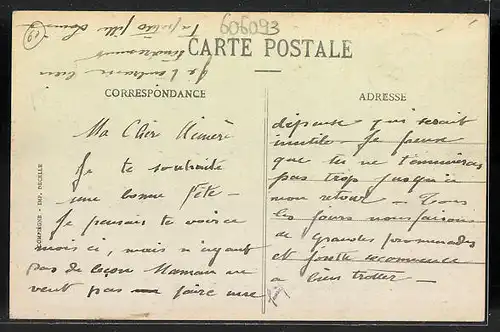 19
606093
CARTE POSTALE
CORRESPONDANCE
ADRESSE
Ma Chère
Je te souhaite
une bonne fête —
Je pensais te voir ce
mois ci, mais n'ayant
pas de leçon Maman ne
veut pas faire une
dépense qui serait
inutile — Je pense
que tu ne t'ennuieras
pas trop jusqu'à
mon retour — Tous
les jours nous faisons
de grandes promenades
et recommence
à bien trotter —
Je t'embrasse bien
tendrement
Ta petite fille
COMPIÈGNE - IMP. DECELLE